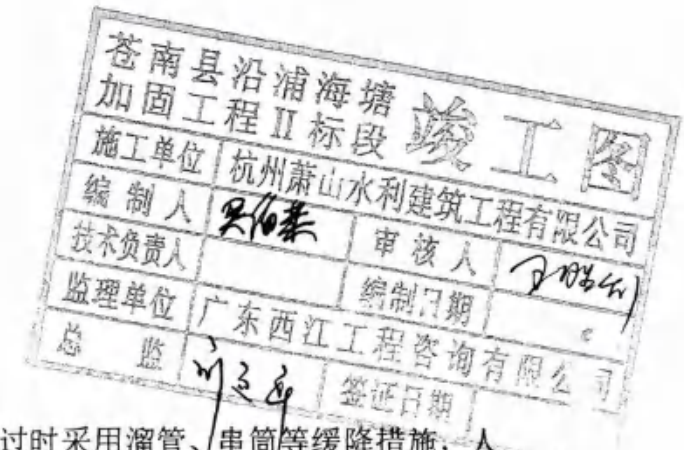 苍南县沿浦海塘
加固工程II标段
竣工图
施工单位 杭州萧山水利建筑工程有限公司
编制人 审核人
技术负责人 编制日期
监理单位 广东西江工程咨询有限公司
总监 签证日期
过时采用溜管、串筒等缓降措施，人